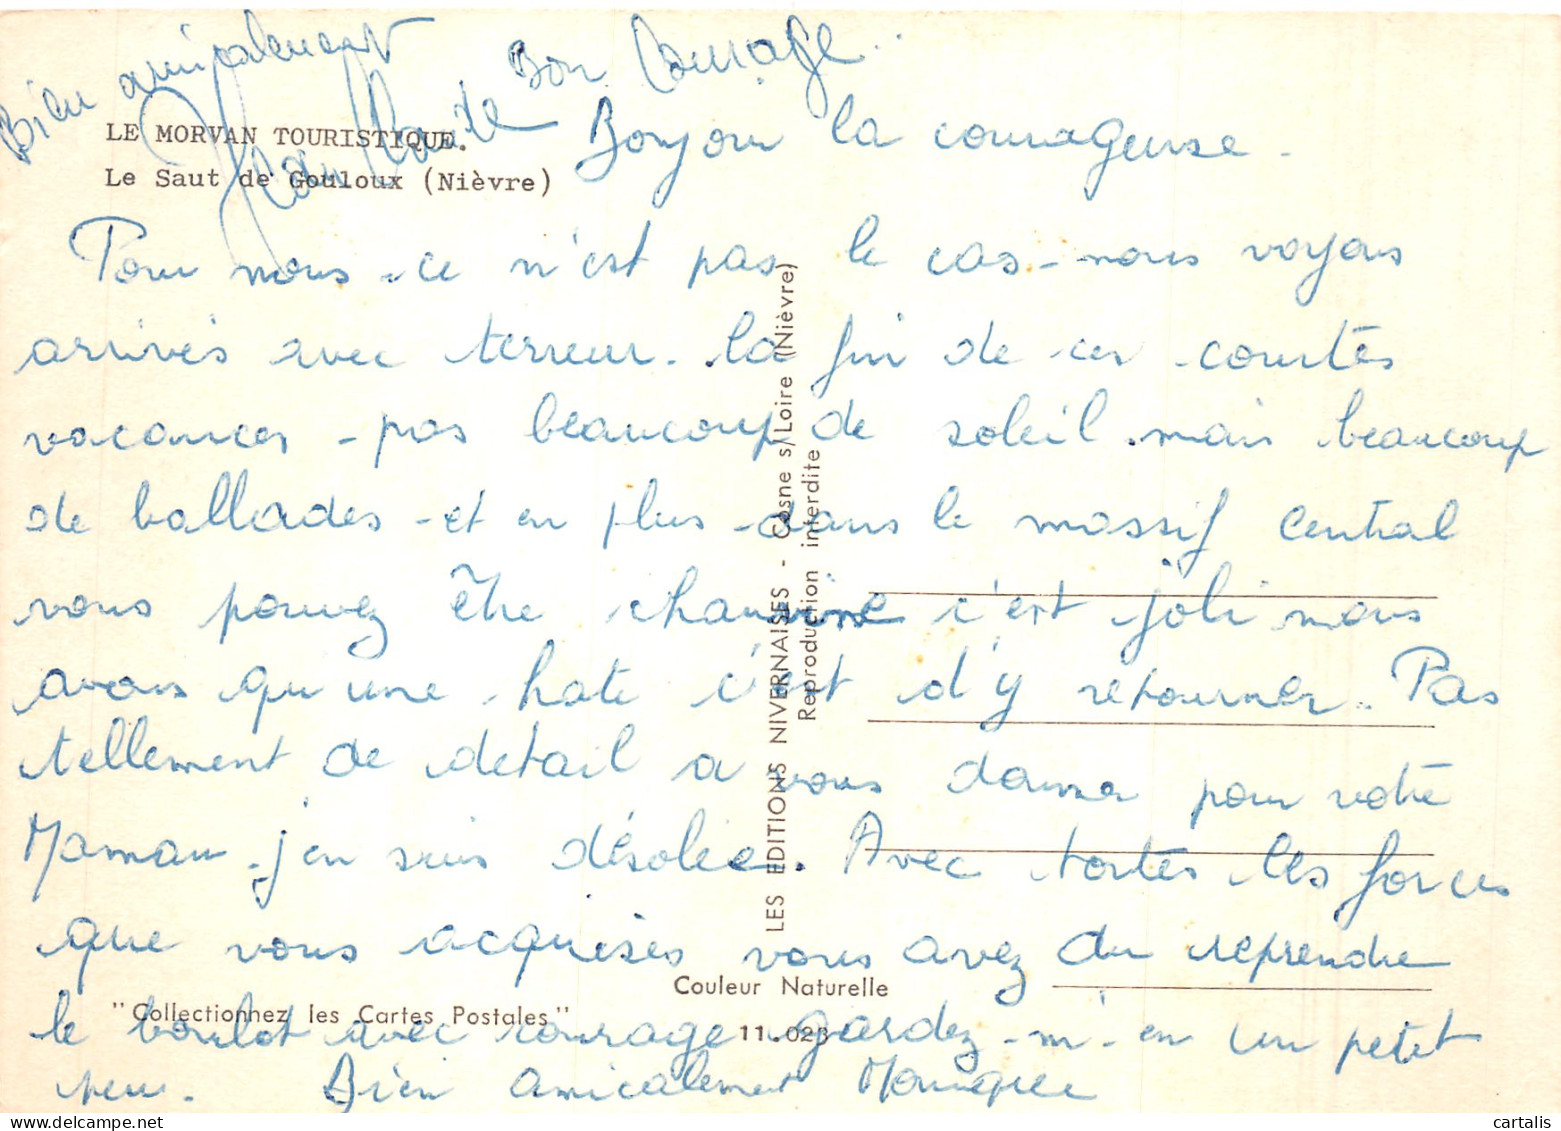 Bien amicalement
Jean Claude Bon Courage..
LE MORVAN TOURISTIQUE.
Le Saut de Gouloux (Nièvre)
Bonjour la courageuse.
Pour nous - ce n'est pas le cas - nous voyons
arrivés avec terreur. la fin de ces courtes
vacances - pas beaucoup de soleil. mais beaucoup
de ballades - et en plus - dans le massif Central
vous pouvez être chauvine c'est joli nous
avons qu'une hate c'est d'y retourner.. Pas
tellement de detail a vous donner pour votre
Maman - j'en suis désolée. Avec toutes les forces
que vous acquises vous avez du reprendre
le boulot avec courage gardez - m'en un petit
peu. Bien amicalement Monique
LES EDITIONS NIVERNAISES - Cosne s/Loire (Nièvre)
Reproduction interdite
Couleur Naturelle
"Collectionnez les Cartes Postales"
11.023
cartalis